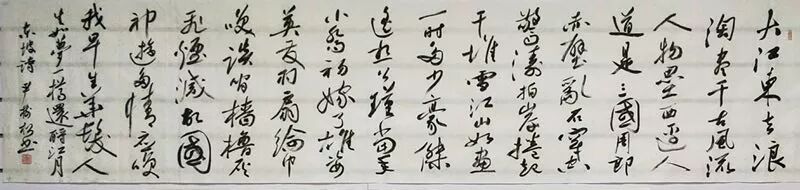 大江東去浪
淘盡千古風流
人物壘西邊人
道是三國周郎
赤壁亂石穿空
驚濤拍岸捲起
千堆雪江山如畫
一時多少豪傑
遙想公瑾當年
小喬初嫁了雄姿
英发羽扇綸巾
咲談間檣櫓灰
飛煙滅故國
神遊多情應咲
我早生華髮人
生如夢一樽還酹江月
东坡詩 尹